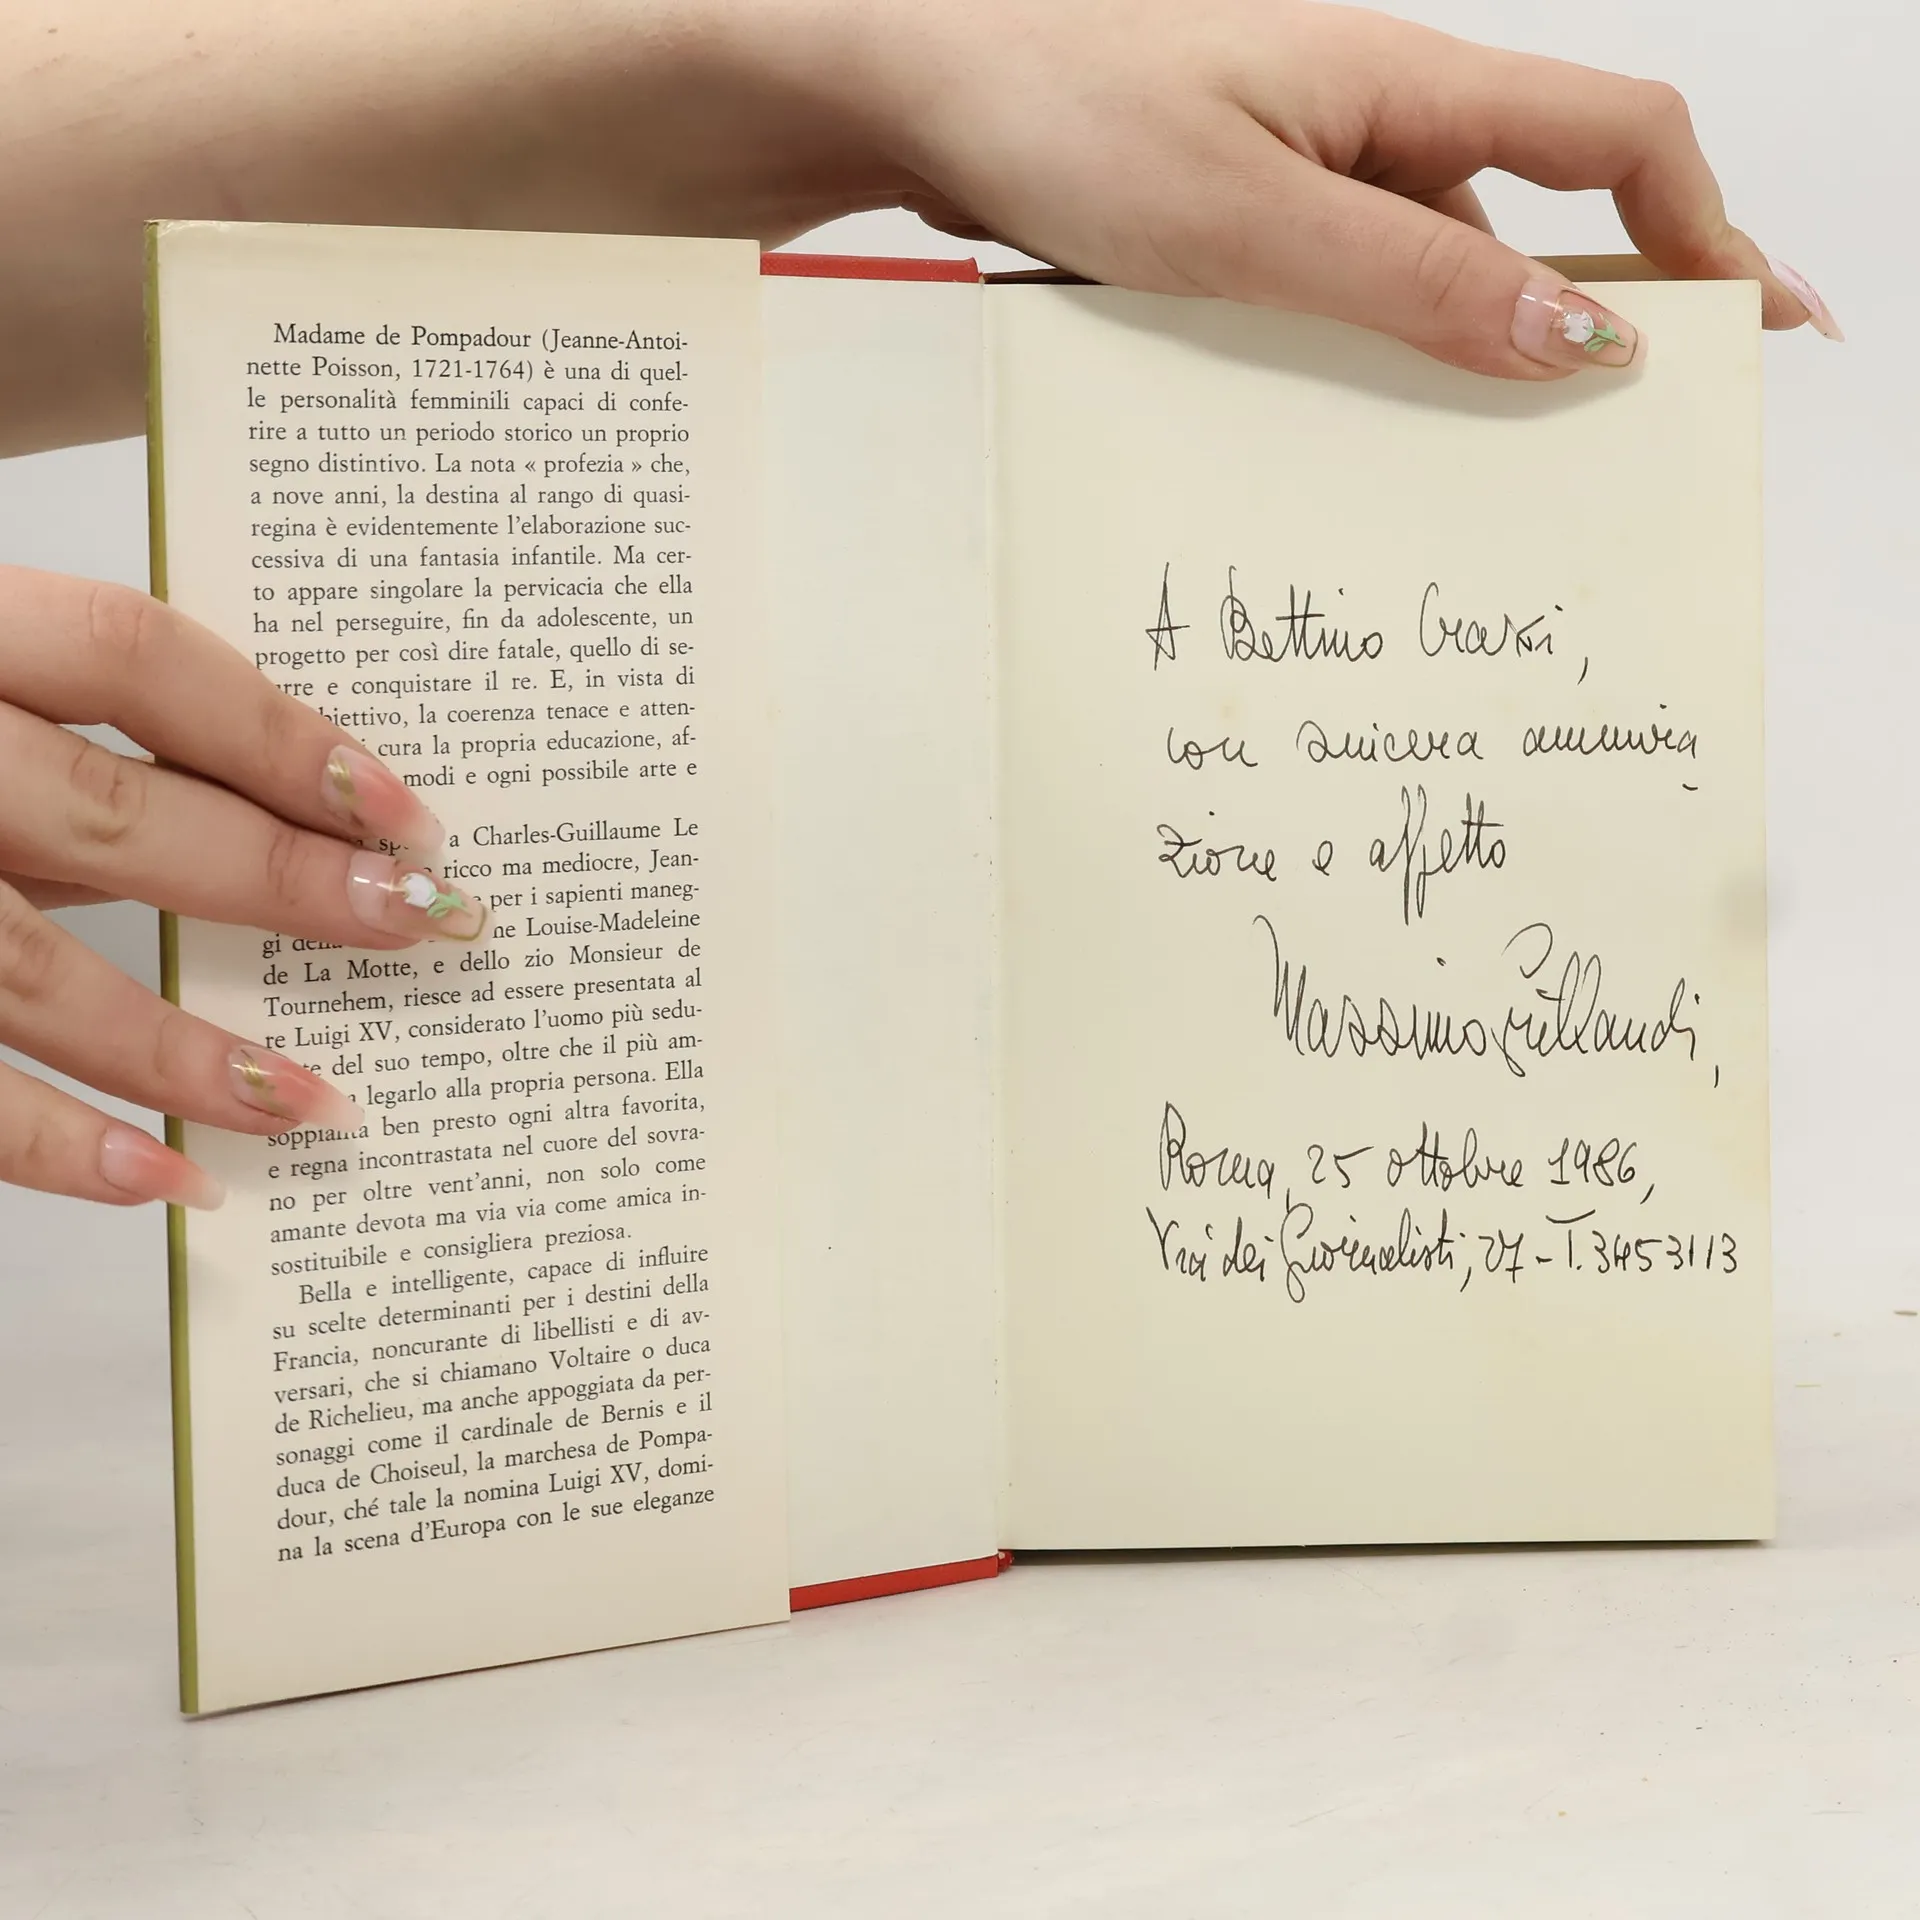 Madame de Pompadour (Jeanne-Antoi-
nette Poisson, 1721-1764) è una di quel-
le personalità femminili capaci di confe-
rire a tutto un periodo storico un proprio
segno distintivo. La nota « profezia » che,
a nove anni, la destina al rango di quasi-
regina è evidentemente l'elaborazione suc-
cessiva di una fantasia infantile. Ma cer-
to appare singolare la pervicacia che ella
ha nel perseguire, fin da adolescente, un
progetto per così dire fatale, quello di se-
urre e conquistare il re. E, in vista di
biettivo, la coerenza tenace e atten-
cura la propria educazione, af-
modi e ogni possibile arte e
a Charles-Guillaume Le
ricco ma mediocre, Jean-
per i sapienti maneg-
gi ne Louise-Madeleine
de La Motte, e dello zio Monsieur de
Tournehem, riesce ad essere presentata al
re Luigi XV, considerato l'uomo più sedu-
te del suo tempo, oltre che il più am-
legarlo alla propria persona. Ella
soppianta ben presto ogni altra favorita,
e regna incontrastata nel cuore del sovra-
no per oltre vent'anni, non solo come
amante devota ma via via come amica in-
sostituibile e consigliera preziosa.
Bella e intelligente, capace di influire
su scelte determinanti per i destini della
Francia, noncurante di libellisti e di av-
versari, che si chiamano Voltaire o duca
de Richelieu, ma anche appoggiata da per-
sonaggi come il cardinale de Bernis e il
duca de Choiseul, la marchesa de Pompa-
dour, ché tale la nomina Luigi XV, domi-
na la scena d'Europa con le sue eleganze
A Bettino Craxi,
con sincera ammira
zione e affetto
Massimo Grillandi,
Roma, 25 ottobre 1986,
Via dei Giornalisti, 27 - T. 3453113